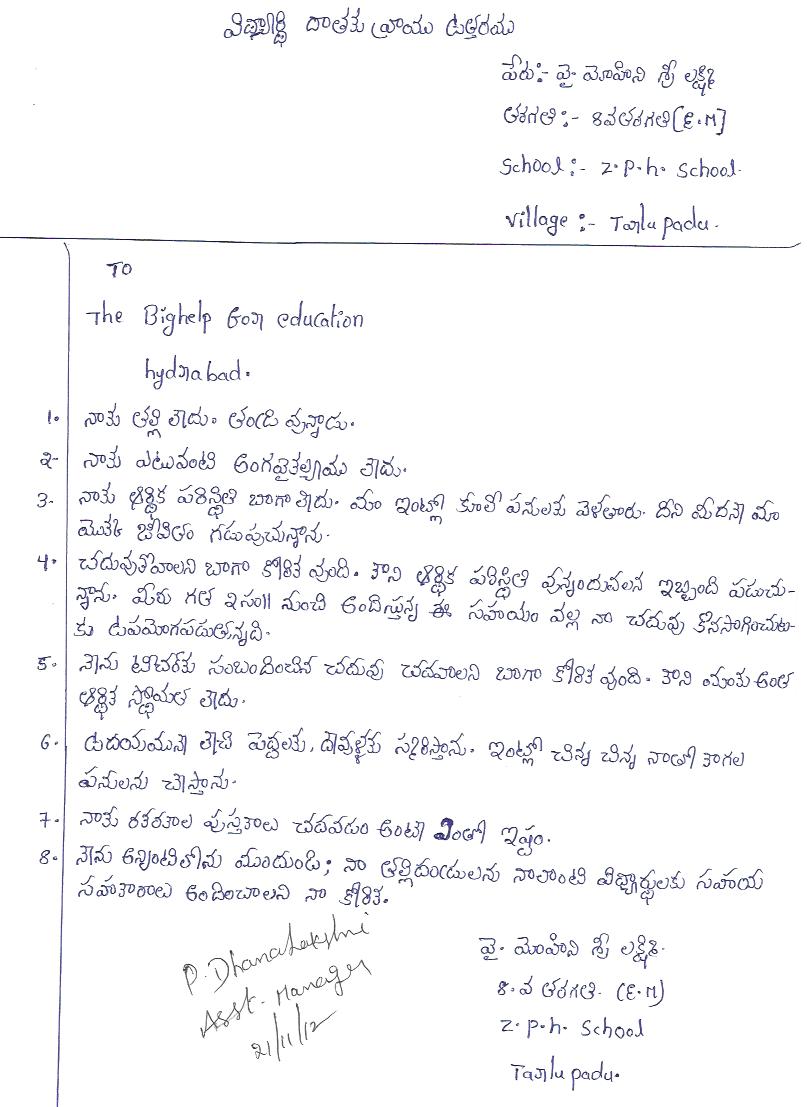 విద్యార్థి దాతకు వ్రాయు ఉత్తరము
పేరు:- వై మోహిని శ్రీ లక్ష్మి
తరగతి:- 8వతరగతి[E.M]
School:- Z.P.h. School.
Village:- Tarlupadu.
TO
The Bighelp For education
hydrabad.
1. నాకు తల్లి లేదు. తండ్రి వున్నాడు.
2- నాకు ఎటువంటి అంగవైకల్యము లేదు.
3- నాకు ఆర్థిక పరిస్థితి బాగా లేదు. మేం ఇంట్లో కూలి పనులకు వెళతారు. దీని మీదనే మా
మొత్తం జీవితం గడుపుచున్నాను.
4. చదువుకోవాలని బాగా కోరిక వుంది. కాని ఆర్థిక పరిస్థితి వున్నందువలన ఇబ్బంది పడుచు-
న్నాను. మీరు గత 2సం॥ నుంచి అందిస్తున్న ఈ సహాయం వల్ల నా చదువు కొనసాగించుట-
కు ఉపయోగపడుతున్నది.
5. నేను టీచరుకు సంబందించిన చదువు చదవాలని బాగా కోరిక వుంది. కాని మాకు అంత
ఆర్థిక స్థోమత లేదు.
6. ఉదయమునే లేచి పెద్దలకు, దేవుళ్ళకు స్మరిస్తాను. ఇంట్లో చిన్న చిన్న నాతో కాగల
పనులను చేస్తాను.
7. నాకు రకరకాల పుస్తకాలు చదవడం అంటే ఎంతో ఇష్టం.
8. నేను అన్నింటిలోను ముందుండి; నా తల్లిదండ్రులను నాలాంటి విద్యార్థులకు సహాయ
సహకారాలు అందించాలని నా కోరిక.
P. Dhanalakshmi
Asst. Manager
21/11/12
వై. మోహిని శ్రీ లక్ష్మి.
8.వ తరగతి. (E.M)
Z.P.h. School
Tarlupadu.